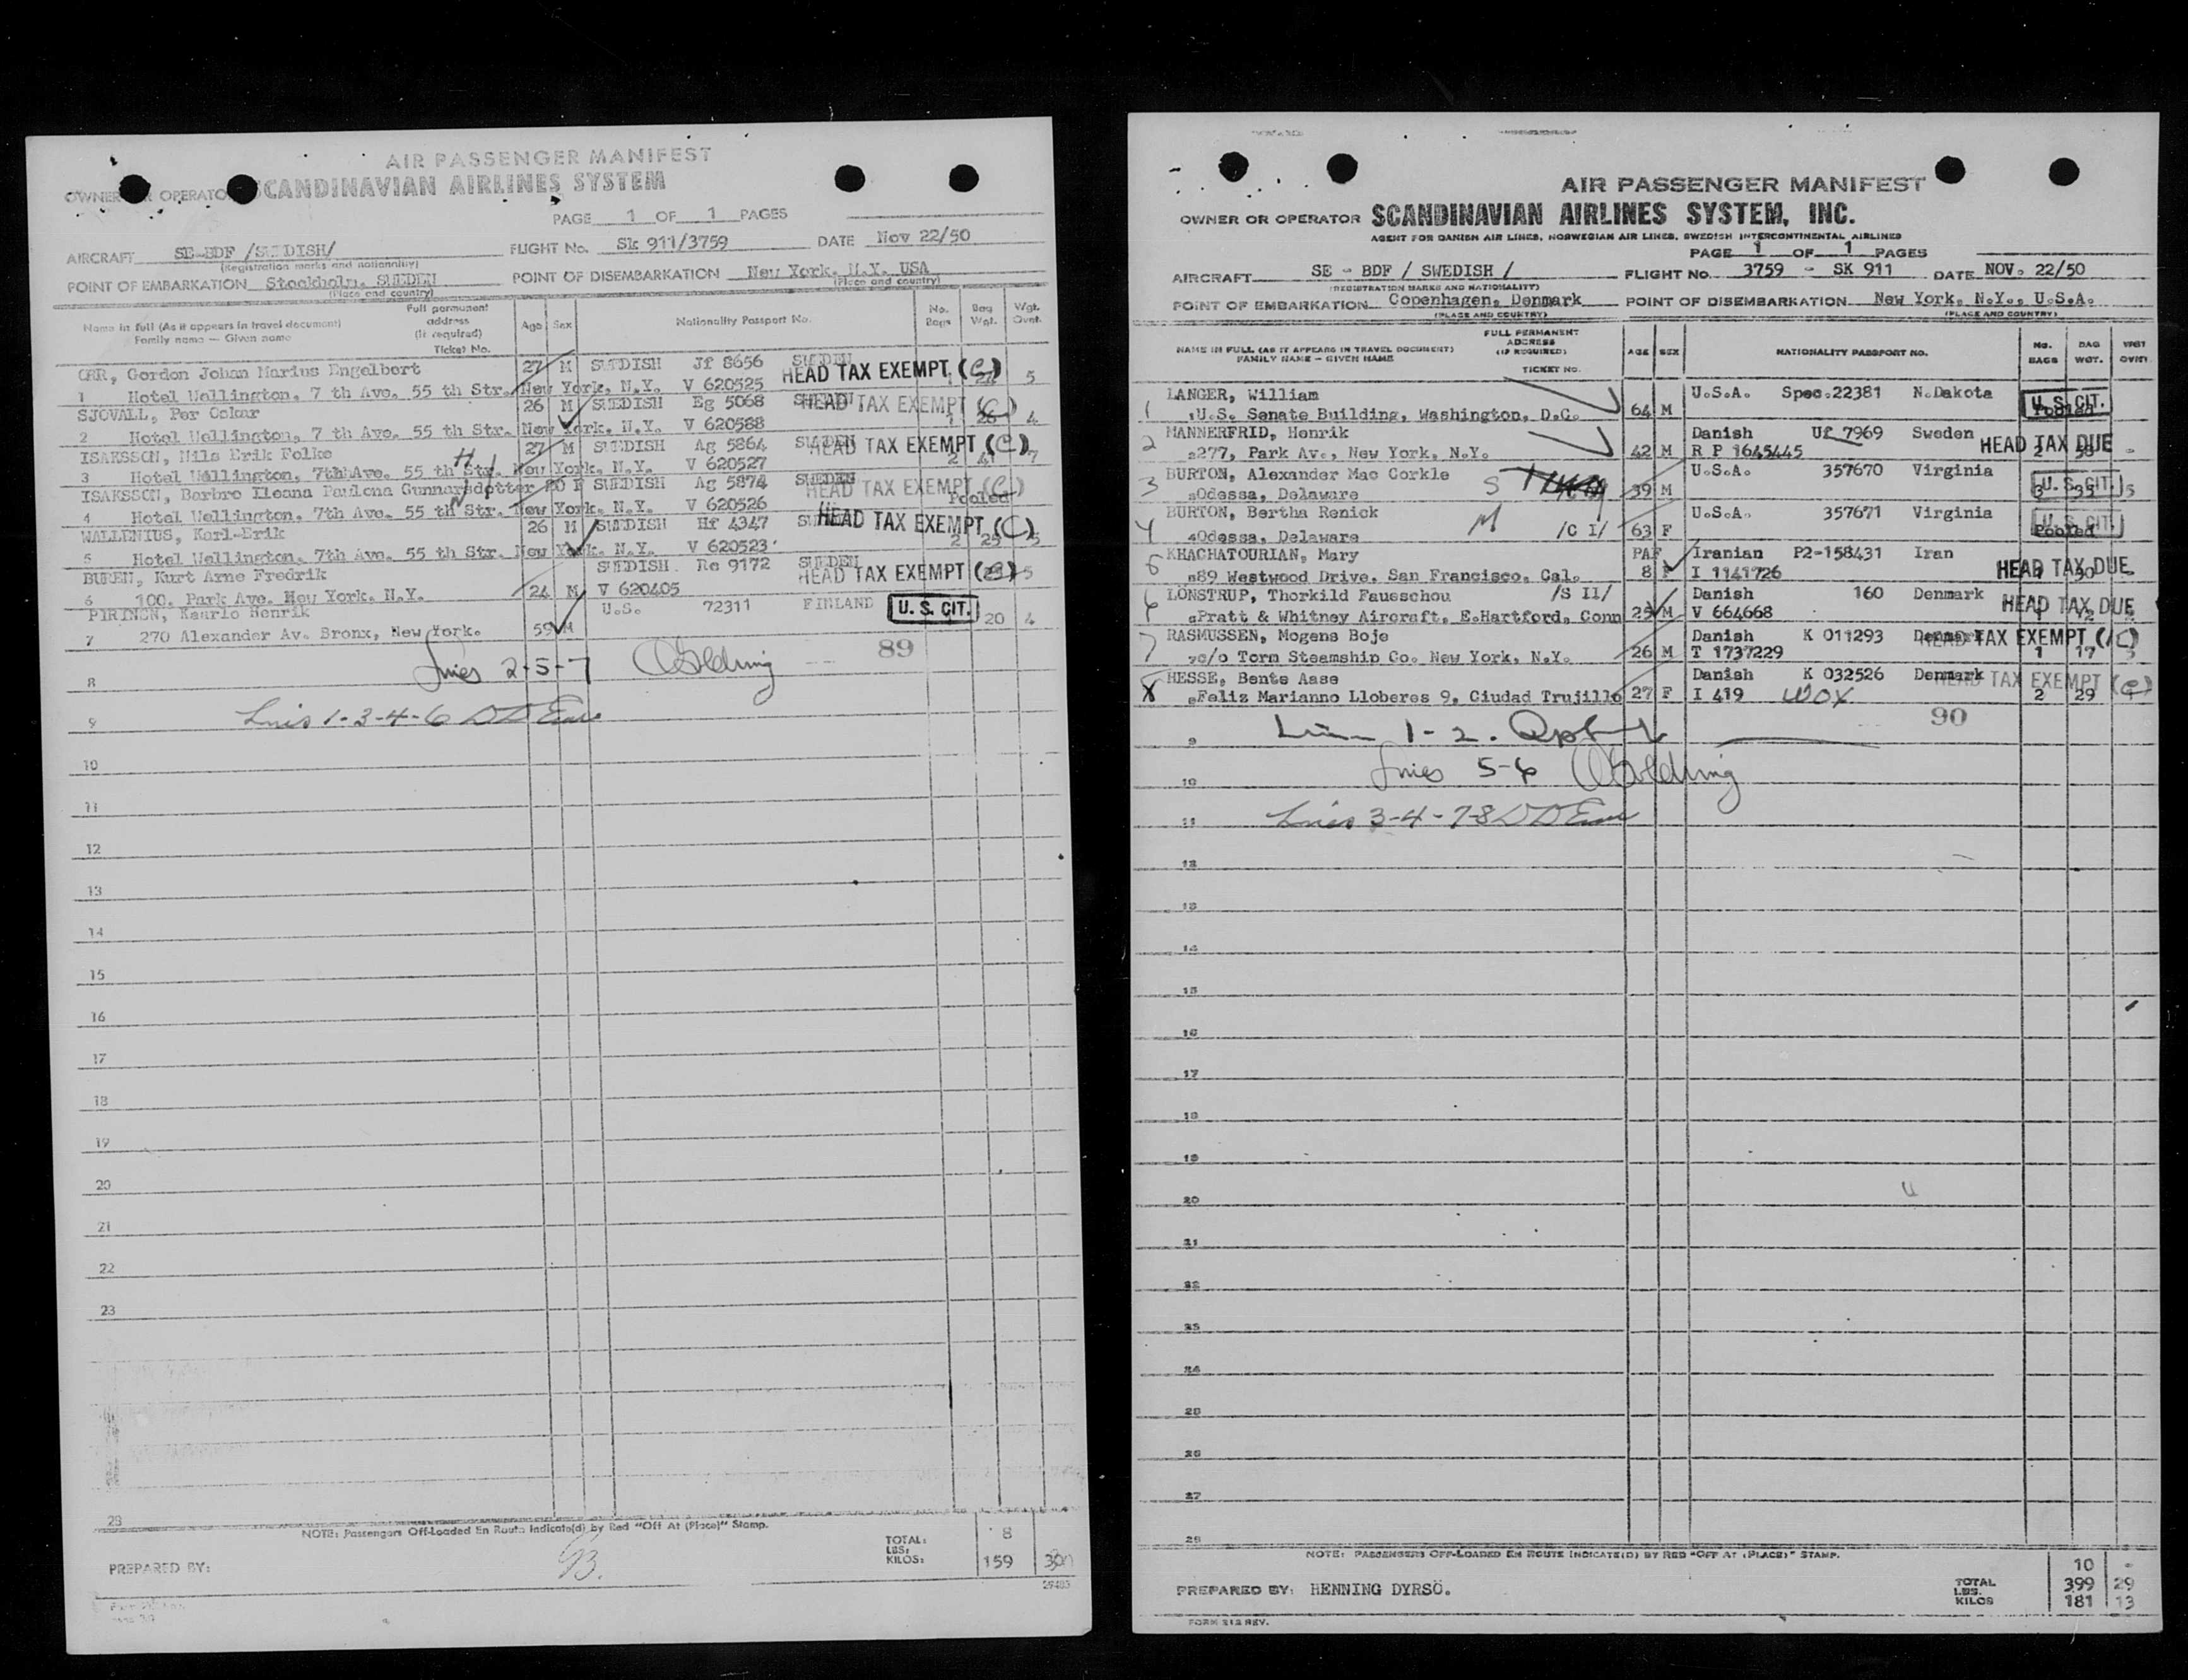 AIR PASSENGER MANIFEST
OWNER OR OPERATOR SCANDINAVIAN AIRLINES SYSTEM
PAGE 1 OF 1 PAGES
AIRCRAFT SE-BDF /SWEDISH/ FLIGHT No. Sk 911/3759 DATE Nov 22/50
(Registration marks and nationality)
POINT OF EMBARKATION Stockholm, SWEDEN POINT OF DISEMBARKATION New York, N.Y. USA
(Place and country) (Place and country)
Name in full (As it appears in travel document) Family name — Given name Full permanent address (If required) Ticket No. Age Sex Nationality Passport No. No. Bags Bag Wgt. Wgt. Ovnt.
Gordon Johan Marius Engelbert 27 M SWEDISH Jf 8656 SWEDEN HEAD TAX EXEMPT (C)
1 Hotel Wellington, 7 th Ave. 55 th Str. New York, N.Y. V 620525 5
SJOVALL, Per Oskar 26 M SWEDISH Eg 5068 HEAD TAX EXEMPT (C)
2 Hotel Wellington, 7 th Ave. 55 th Str. New York, N.Y. V 620588 1 26 4
ISAKSSON, Nils Erik Folke 27 M SWEDISH Ag 5864 SWEDEN HEAD TAX EXEMPT (C)
3 Hotel Wellington, 7th Ave. 55 th Str. New York, N.Y. V 620527 2 41 7
ISAKSSON, Barbro Ileana Paulona Gunnarsdotter 20 F SWEDISH Ag 5874 SWEDEN HEAD TAX EXEMPT (C)
4 Hotel Wellington, 7th Ave. 55 th Str. New York, N.Y. V 620526 Pooled
WALLENIUS, Karl-Erik 26 M SWEDISH Hf 4347 HEAD TAX EXEMPT (C)
5 Hotel Wellington, 7th Ave. 55 th Str. New York, N.Y. V 620523 2 25 5
BUREN, Kurt Arne Fredrik SWEDISH Rc 9172 SWEDEN HEAD TAX EXEMPT (C) 5
6 100, Park Ave. New York, N.Y. 24 M V 620405
PIRINEN, Kaarlo Henrik U.S. 72311 FINLAND U. S. CIT. 20 4
7 270 Alexander Av. Bronx, New York. 59 M
89
8 lines 2-5-7 Golding
9 Lines 1-3-4-6
10
11
12
13
14
15
16
17
18
19
20
21
22
23
28
NOTE: Passengers Off-Loaded En Route Indicate(d) by Red "Off At (Place)" Stamp.
TOTAL: 8
LBS:
KILOS: 159 30
PREPARED BY:
29403
AIR PASSENGER MANIFEST
OWNER OR OPERATOR SCANDINAVIAN AIRLINES SYSTEM, INC.
AGENT FOR DANISH AIR LINES, NORWEGIAN AIR LINES, SWEDISH INTERCONTINENTAL AIRLINES
PAGE 1 OF 1 PAGES
AIRCRAFT SE - BDF / SWEDISH / FLIGHT No. 3759 - SK 911 DATE NOV. 22/50
(REGISTRATION MARKS AND NATIONALITY)
POINT OF EMBARKATION Copenhagen, Denmark POINT OF DISEMBARKATION New York, N.Y., U.S.A.
(PLACE AND COUNTRY) (PLACE AND COUNTRY)
NAME IN FULL (AS IT APPEARS IN TRAVEL DOCUMENT) FAMILY NAME – GIVEN NAME FULL PERMANENT ADDRESS (IF REQUIRED) TICKET NO. AGE SEX NATIONALITY PASSPORT NO. NO. BAGS BAG WGT. WGT OVNT
LANGER, William U.S.A. Spec.22381 N.Dakota U. S. CIT.
1 U.S. Senate Building, Washington, D.C. 64 M Pooled
MANNERFRID, Henrik Danish Uf 7969 Sweden HEAD TAX DUE
2 277, Park Av., New York, N.Y. 42 M R P 1645445 2 58 -
BURTON, Alexander Mac Corkle S U.S.A. 357670 Virginia U. S. CIT.
3 Odessa, Delaware 39 M 3 35 5
BURTON, Bertha Renick M U.S.A. 357671 Virginia U. S. CIT.
4 Odessa, Delaware /C I/ 63 F Pooled
KHACHATOURIAN, Mary PAF Iranian P2-158431 Iran HEAD TAX DUE
5 89 Westwood Drive, San Francisco, Cal. 8 F I 1141726 1 30
LONSTRUP, Thorkild Faueschou /S II/ Danish 160 Denmark HEAD TAX DUE
6 Pratt & Whitney Aircraft, E.Hartford, Conn 25 M V 664668 1 12
RASMUSSEN, Mogens Boje Danish K 011293 Denmark HEAD TAX EXEMPT (C)
7 c/o Torm Steamship Co. New York, N.Y. 26 M T 1737229 1 17 3
HESSE, Bente Aase Danish K 032526 Denmark HEAD TAX EXEMPT (C)
8 Feliz Marianno Lloberes 9, Ciudad Trujillo 27 F I 419 WOX 2 29
90
9 1-2.
10 lines 5-6 Golding
11 Lines 3-4-7-8
12
13
14
15
16
17
18
19
20
21
22
23
24
25
26
27
28
NOTE: PASSENGERS OFF-LOADED EN ROUTE INDICATE(D) BY RED "OFF AT (PLACE)" STAMP.
PREPARED BY: HENNING DYRSÖ.
TOTAL 10 -
LBS. 399 29
KILOS 181 13
FORM 212 REV.